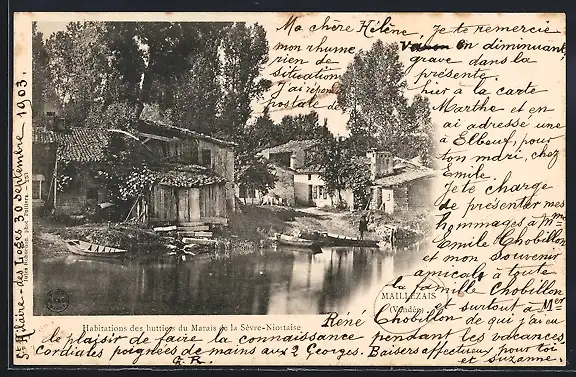 St Hilaire-des-Loges 30 septembre 1903.
Ma chère Hélène, Je te remercie
mon rhume en diminuant,
rien de grave dans la
situation présente.
J'ai répondu hier à la carte
postale de Marthe et en
ai adressé une
à Elbeuf, pour
ton mari, chez
Emile.
Je te charge
de présenter mes
hommages à Mme
Emile Chobillon
et mon souvenir
amical à toute
la famille Chobillon
et surtout à Mer
Chobillon de qui j'ai eu
le plaisir de faire la connaissance pendant les vacances.
Cordiales poignées de mains aux 2 Georges. Baisers affectueux pour toi
et Suzanne.
René
G. R.
MAILLEZAIS
(Vendée)
Habitations des huttiers du Marais de la Sèvre-Niortaise